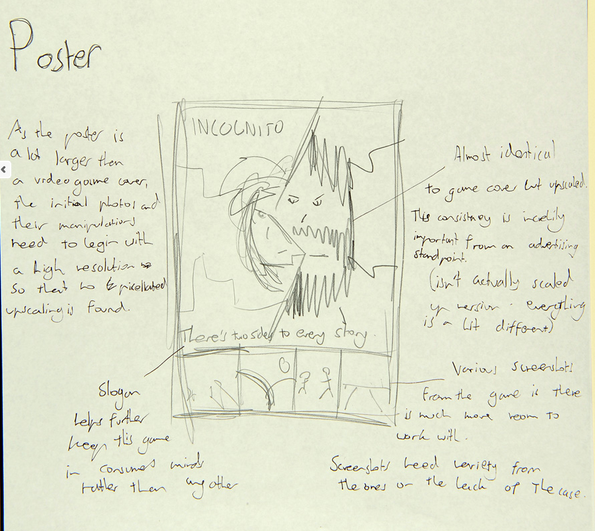 Poster
As the poster is
a lot larger then
a videogame cover,
the initial photos and
their manipulations
need to begin with
a high resolution
so that no pixellated
upscaling is found.
INCOGNITO
There's two sides to every story.
Almost identical
to game cover but upscaled.
This consistency is incredily
important from an advertising
standpoint.
(isn't actually scaled
up version - everything
is a bit different)
Slogan
helps further
keep this game
in consumers minds
rather than any other
Various screenshots
from the game as there
is much more room to
work with.
Screenshots need variety from
the ones on the back of the case.